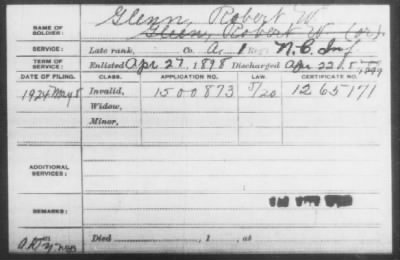 Glenn, Robert W
NAME OF SOLDIER: Gleen, Robert W. (or).
SERVICE: Late rank, Co. A, 1 Reg't N.C. Inf
TERM OF SERVICE: Enlisted Apr 27, 1898 Discharged Apr 22, 1899
DATE OF FILING. CLASS. APPLICATION NO. LAW. CERTIFICATE NO.
1924 May 8 Invalid, 1500873 1265171
Widow,
Minor,
ADDITIONAL SERVICES:
REMARKS:
Died , 1 , at